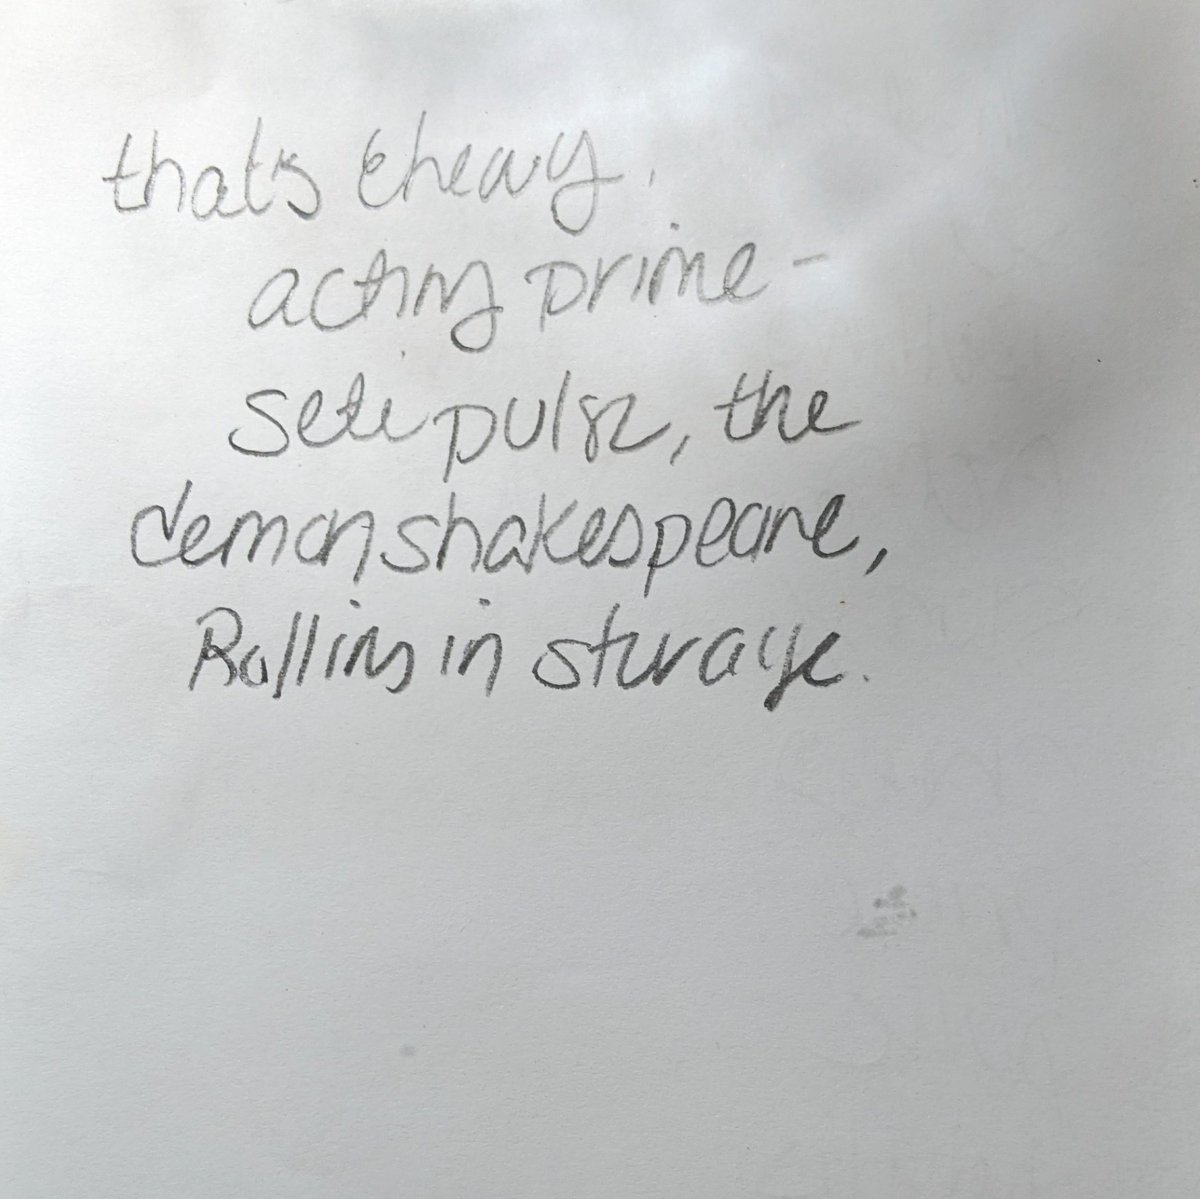 that's cheavy.
acting prime -
seti pulse, the
demon shakespeare,
Rolling in storage.